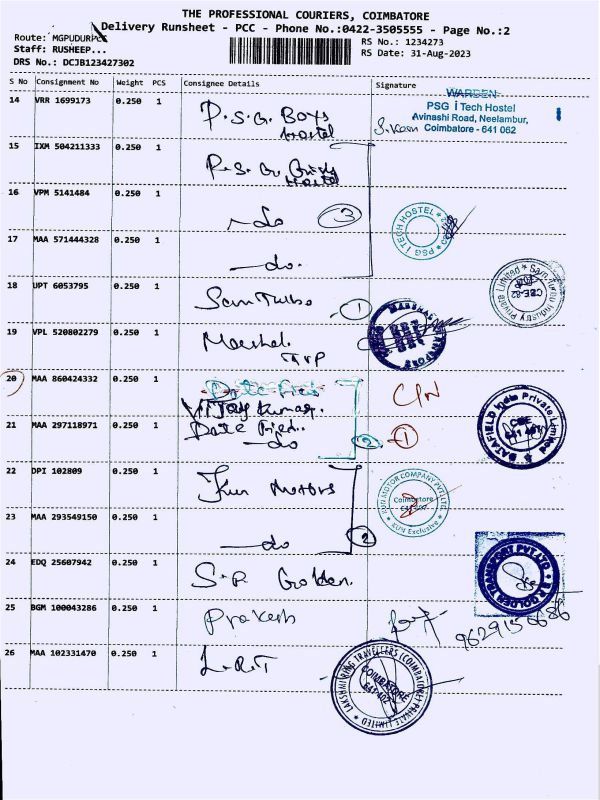 THE PROFESSIONAL COURIERS, COIMBATORE
Delivery Runsheet - PCC - Phone No.:0422-3505555 - Page No.:2
Route: MGPUDUR
Staff: RUSHEEP...
DRS No.: DCJB123427302
RS No.: 1234273
RS Date: 31-Aug-2023
S No Consignment No Weight PCS Consignee Details Signature
14 VRR 1699173 0.250 1 P.S.G. Boys Hostel
WARDEN
PSG iTech Hostel
Avinashi Road, Neelambur,
Coimbatore - 641 062
15 IXM 504211333 0.250 1 P.S.G. Girls Hostel
16 VPM 5141484 0.250 1 - do 3
PSG iTECH HOSTEL
17 MAA 571444328 0.250 1 - do.
18 UPT 6053795 0.250 1 Sam Turbo 1
Sam Turbo Industry Private Limited
19 VPL 520802279 0.250 1 Marshal. TVP
20 MAA 860424332 0.250 1 Date Field
Vijay Kumar.
C/N
21 MAA 297118971 0.250 1 Date Field..
- do 2 1
DATAFIELD India Private Limited
CBE
22 DPI 102809 0.250 1 Jkun Motors
KUN MOTOR COMPANY PVT.LTD
Coimbatore
23 MAA 293549150 0.250 1 - do 2
24 EDQ 25607942 0.250 1 S.P. Golden.
S.R.GOLDEN TRANSPORT PVT.LTD
25 BGM 100043286 0.250 1 Prakash
26 MAA 102331470 0.250 1 L.R.T
LAKSHMI RING TRAVELLERS (COIMBATORE) PRIVATE LIMITED
COIMBATORE
641 402